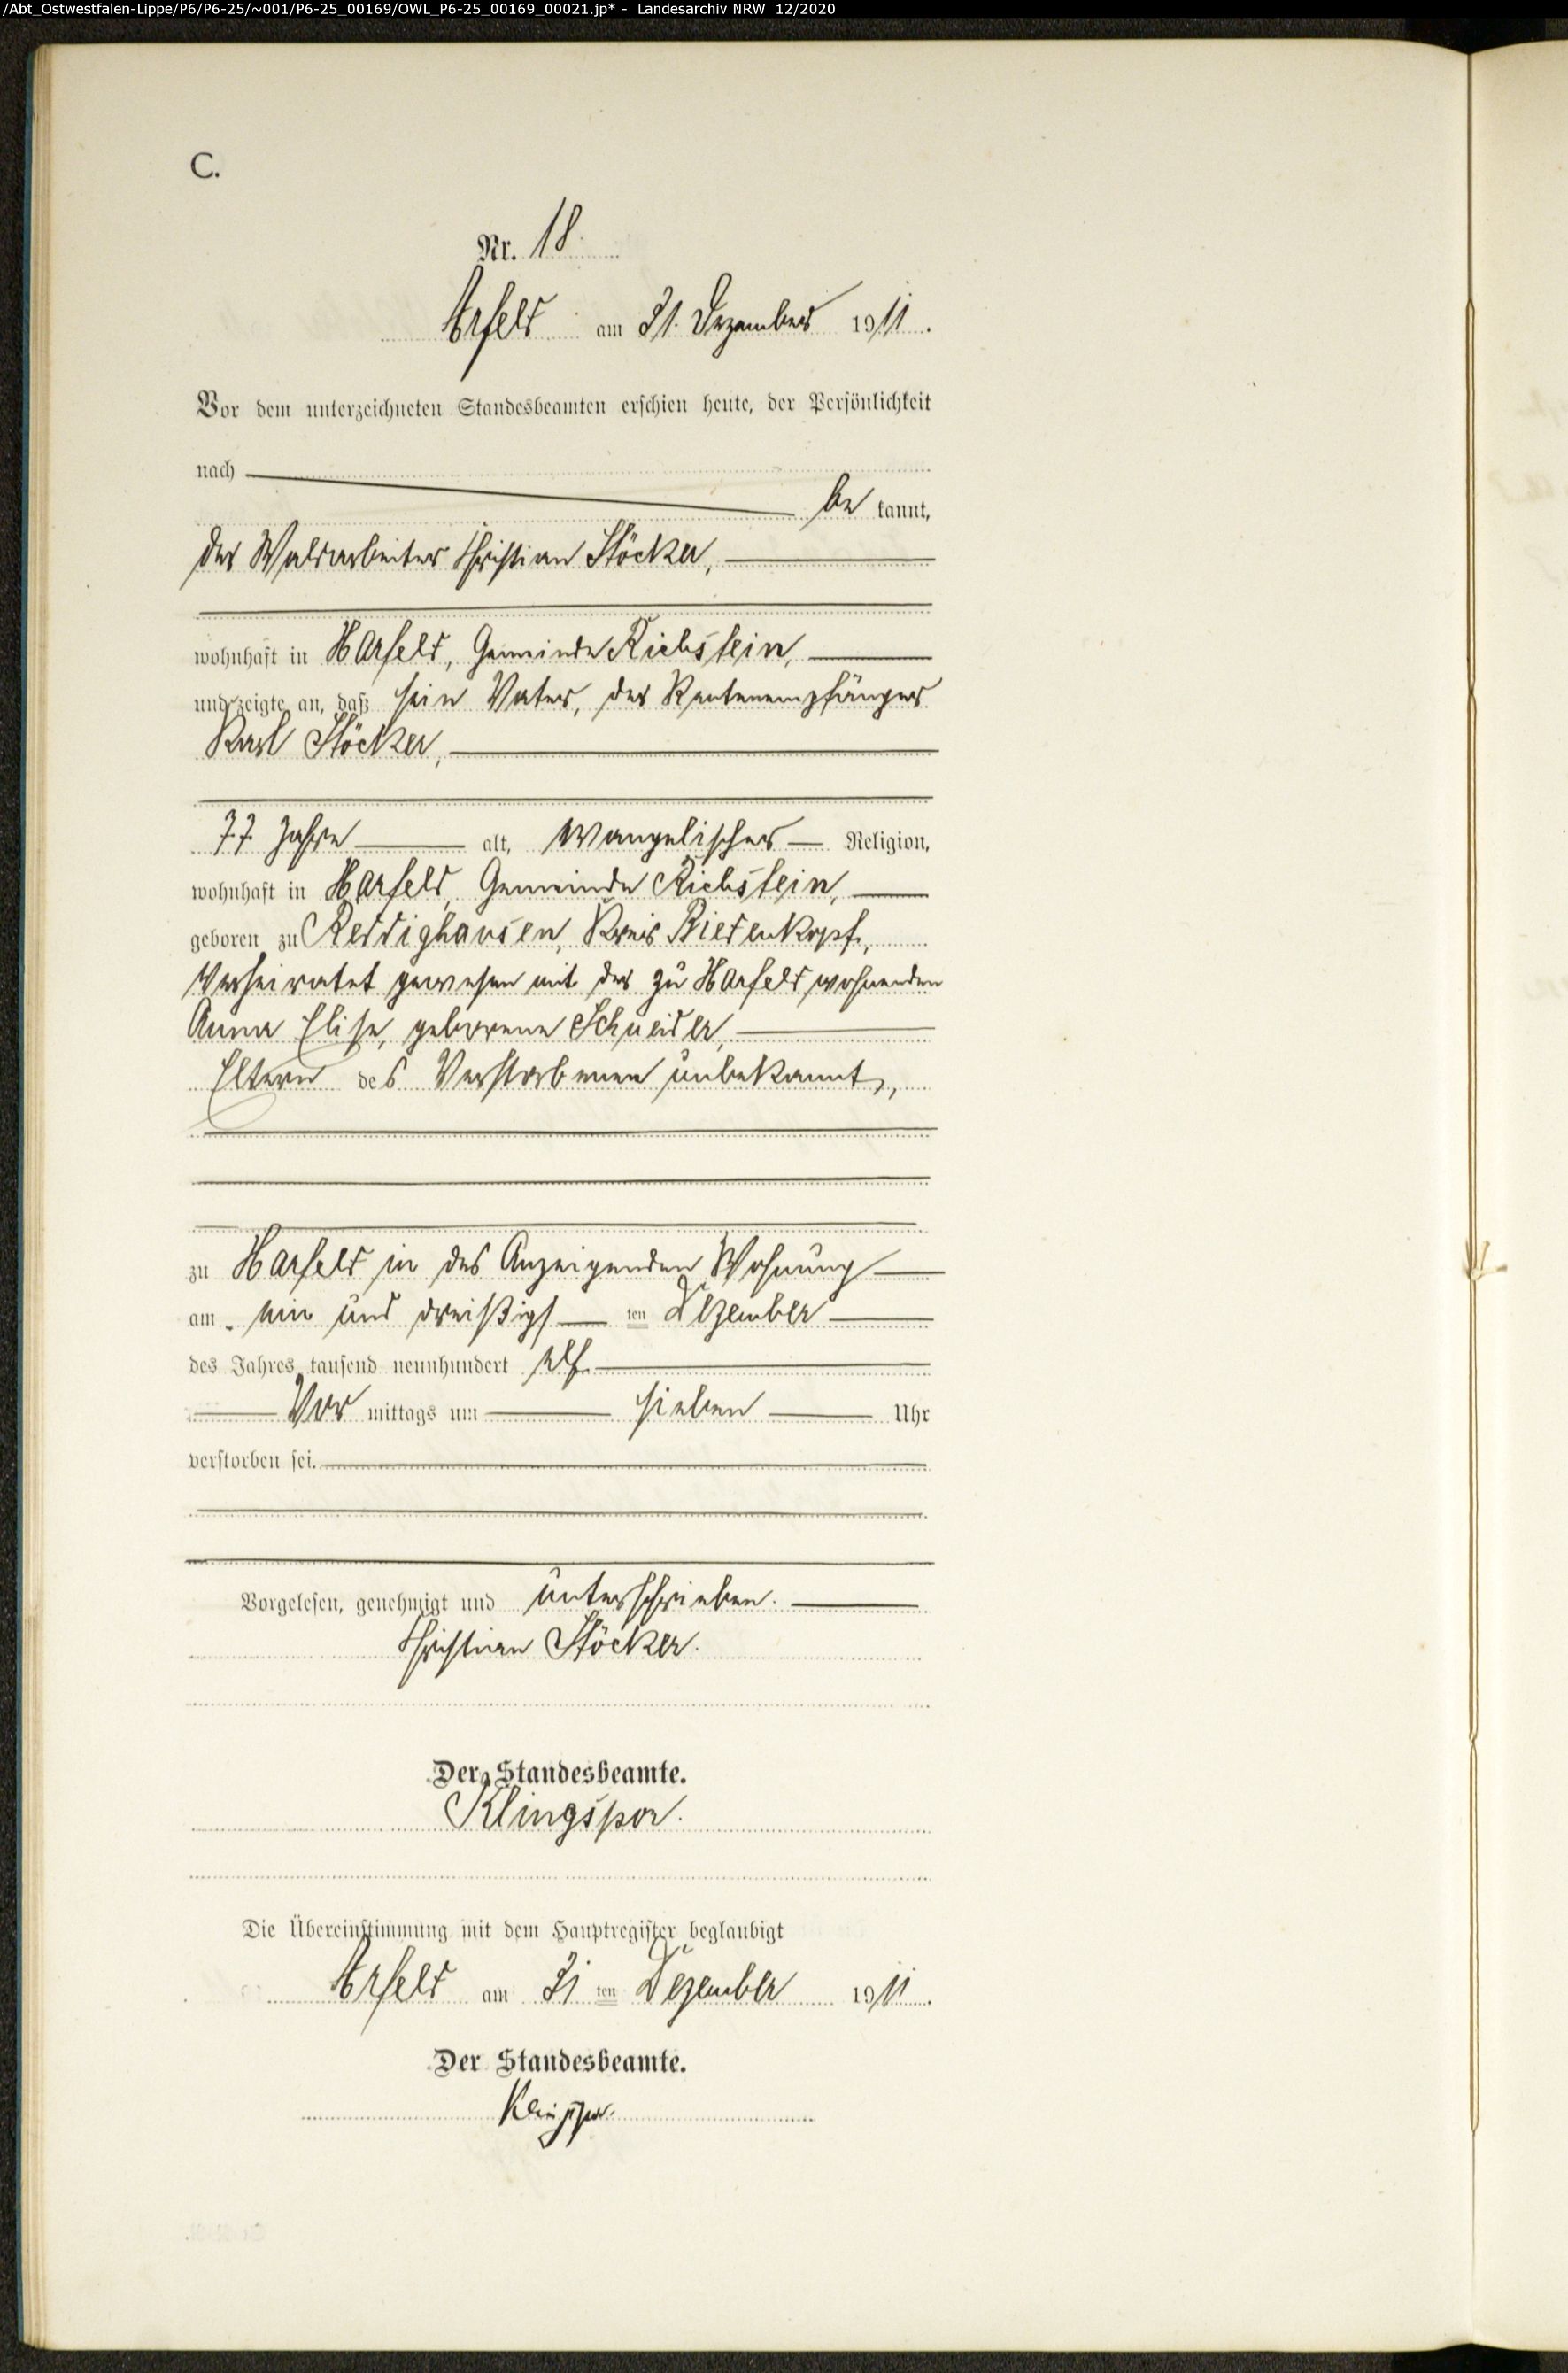 /Abt_Ostwestfalen-Lippe/P6/P6-25/~001/P6-25_00169/OWL_P6-25_00169_00021.jp* - Landesarchiv NRW 12/2020
C.
Nr. 18.
Arfeld am 31. Dezember 1911.
Vor dem unterzeichneten Standesbeamten erschien heute, der Persönlichkeit
nach
be kannt,
der Waldarbeiter Christian Stöcker,
wohnhaft in Harfeld, Gemeinde Richstein,
und zeigte an, daß sein Vater, der Rentenempfänger
Karl Stöcker,
77 Jahre alt, evangelischer Religion,
wohnhaft in Harfeld, Gemeinde Richstein,
geboren zu Reddighausen, Kreis Biedenkopf,
verheiratet gewesen mit der zu Harfeld wohnenden
Anna Elise, geborene Schneider,
Eltern des Verstorbenen unbekannt,
zu Harfeld in des Anzeigenden Wohnung
am ein und dreißigs ten Dezember
des Jahres tausend neunhundert elf
Vor mittags um sieben Uhr
verstorben sei.
Vorgelesen, genehmigt und unterschrieben.
Christian Stöcker.
Der Standesbeamte.
Klingspor.
Die Übereinstimmung mit dem Hauptregister beglaubigt
Arfeld am 31 ten Dezember 1911.
Der Standesbeamte.
Klingspor.